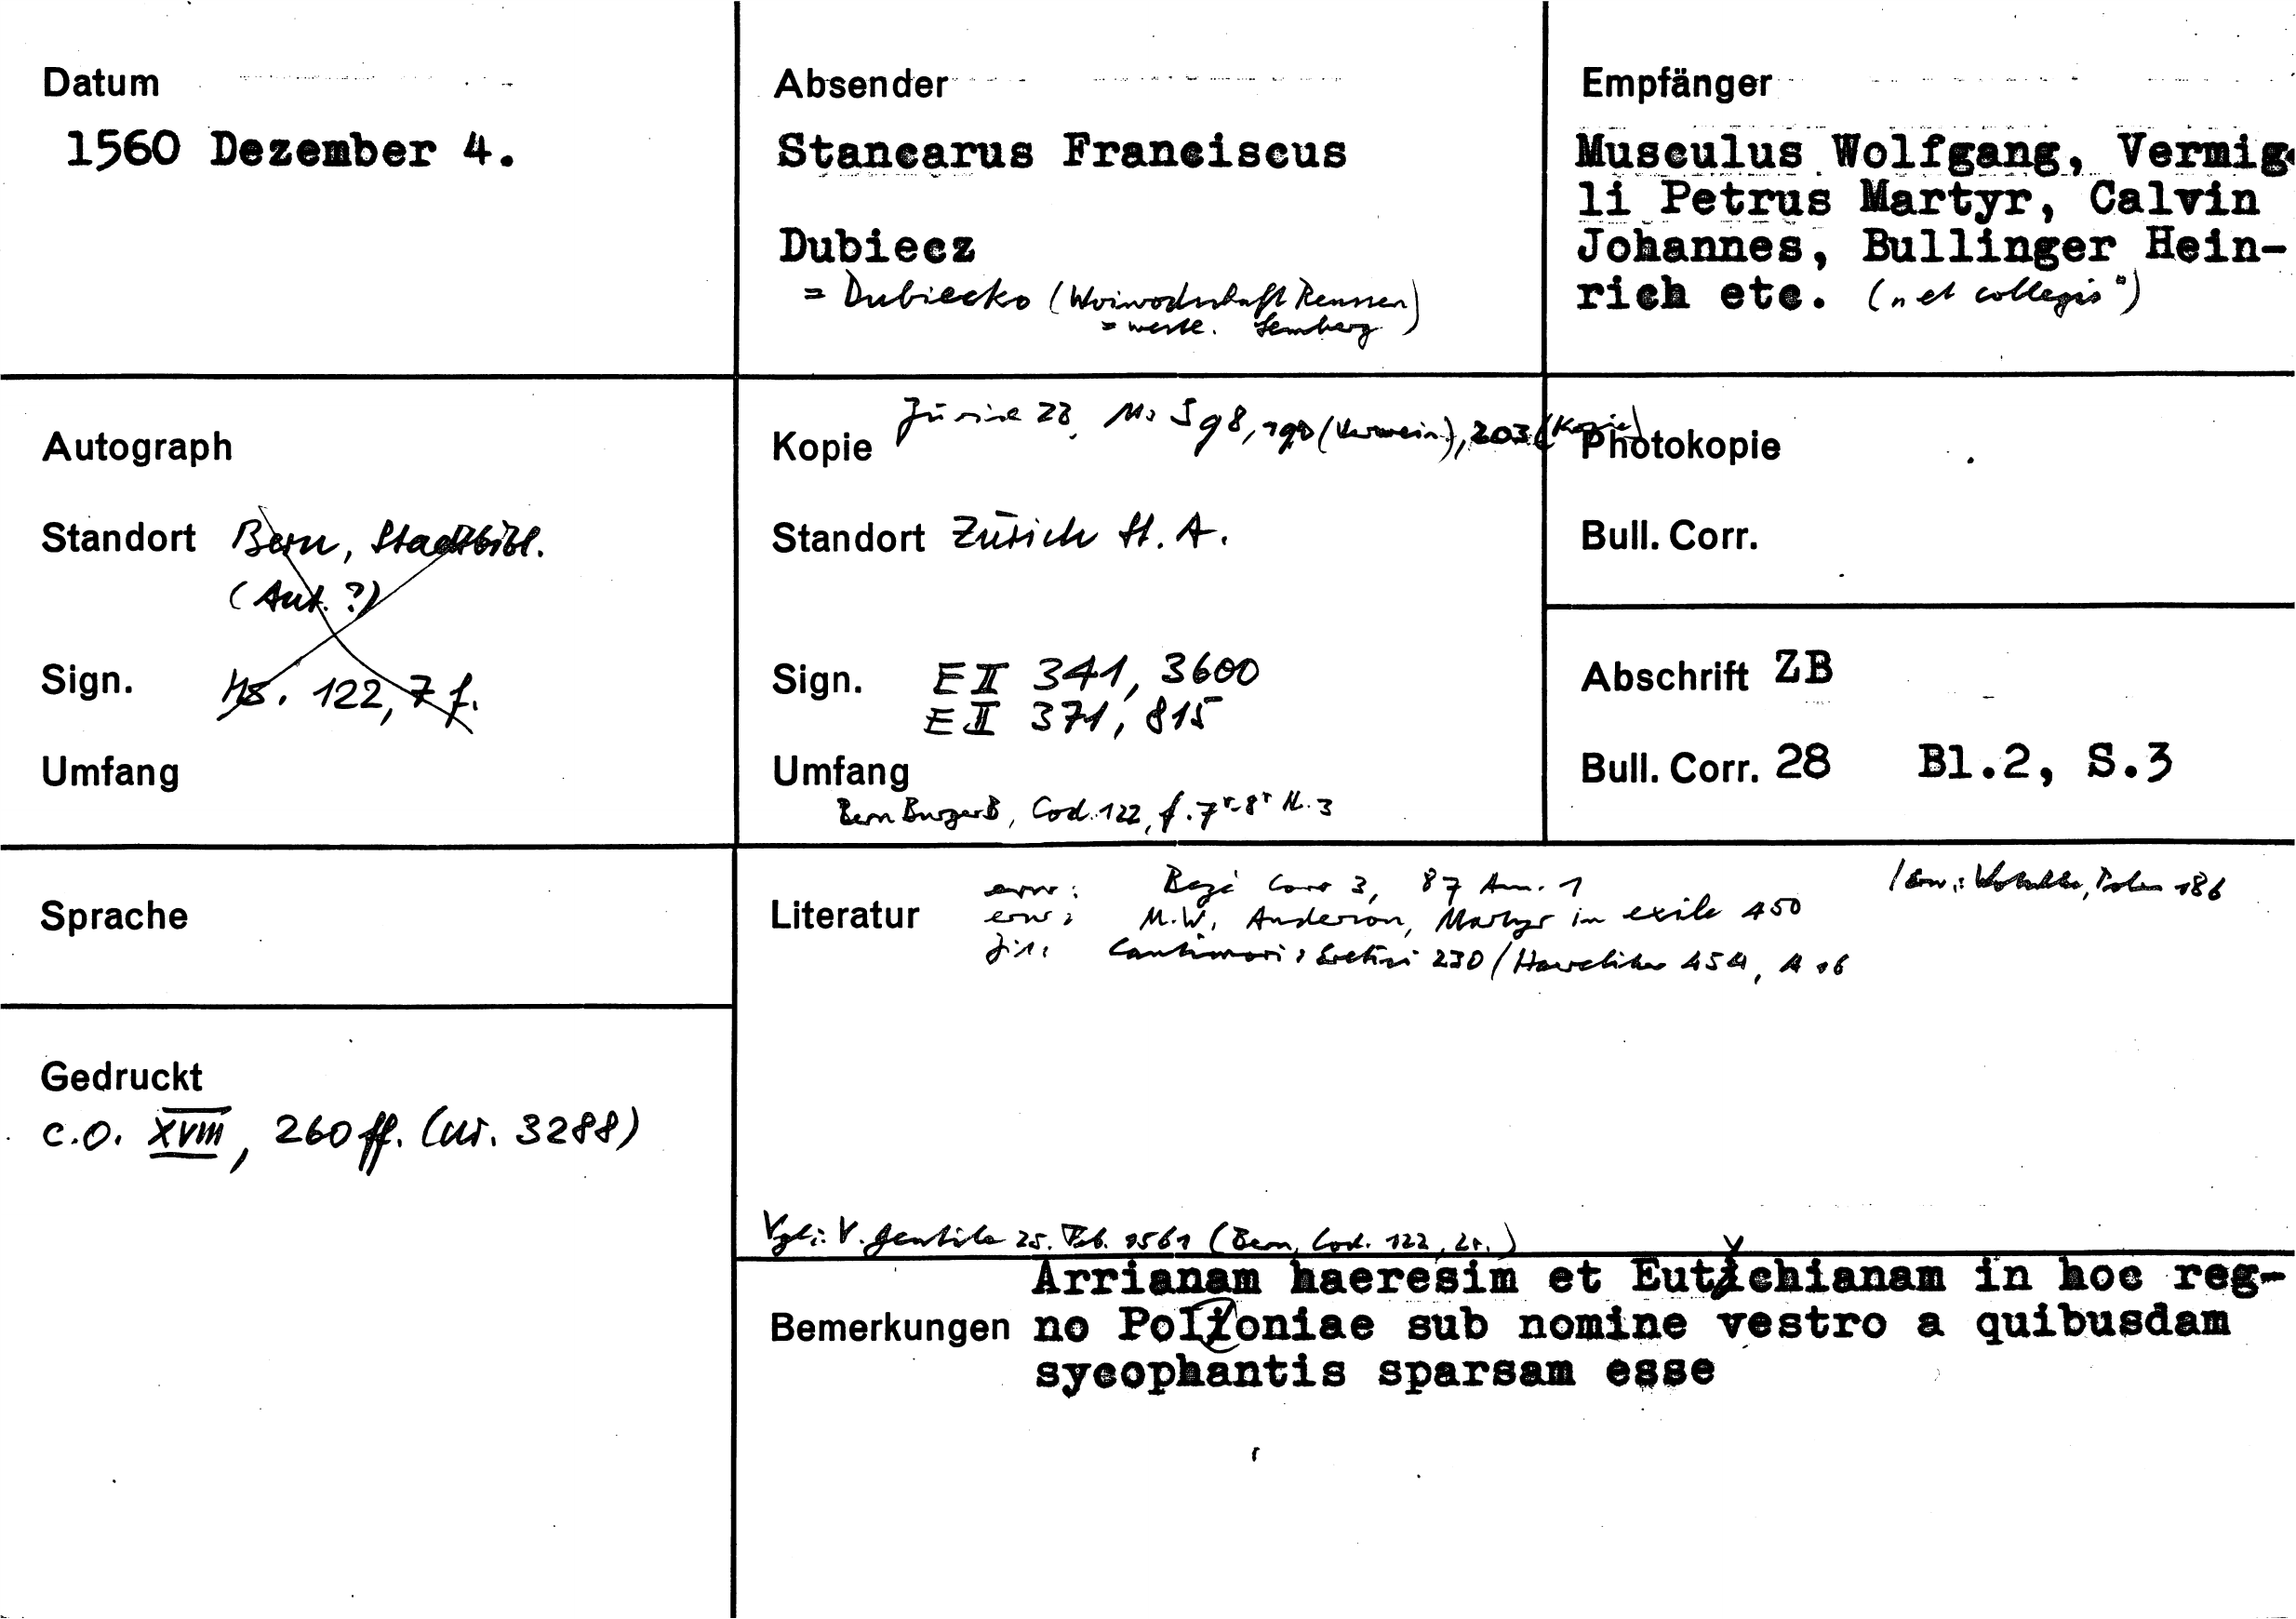 Datum
1560 Dezember 4.
Absender
Stancarus Franciscus
Dubiecz
= Dubiecko (Woiwodschaft Reussen)
= westl. Lemberg
Empfänger
Musculus Wolfgang, Vermig
li Petrus Martyr, Calvin
Johannes, Bullinger Hein-
rich etc. („et collegis")
Autograph
Standort Bern, Stadtbibl.
(Aut.?)
Sign. Hs. 122, 7 f.
Umfang
Zürich ZB, Ms S 98, 190 (Verweis), 203 (Kopie)
Kopie
Standort Zürich St. A.
Sign. E II 341, 3600
E II 371, 815
Umfang
Bern BurgerB, Cod. 122, f. 7r-8r N. 3
Photokopie
Bull. Corr.
Abschrift ZB
Bull. Corr. 28 Bl.2, S.3
Sprache
Gedruckt
C.O. XVIII, 260 ff. (nr. 3288)
Literatur
erw: Bèze Corr 3, 87 Anm. 1
erw: M.W. Anderson, Martyr in exile 450
zit. Cantimori: Eretici 230 / Haeretiker 454, A 16
Vgl: V. Gentile 25. Feb. 1561 (Bern, Cod. 122, 2r.)
Bemerkungen
Arrianam haeresim et Eutychianam in hoc reg-
no Poloniae sub nomine vestro a quibusdam
sycophantis sparsam esse